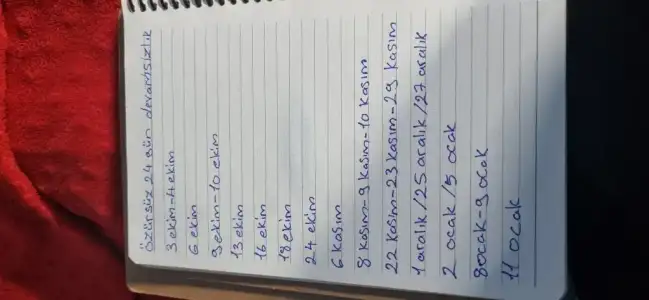 özürsüz 24 gün devamsızlık
3 ekim-4 ekim
6 ekim
9 ekim-10 ekim
13 ekim
16 ekim
18 ekim
24 ekim
6 kasım
8 kasım-9 kasım-10 kasım
22 kasım-23 kasım-29 kasım
1 aralık/25 aralık/27 aralık
2 ocak/5 ocak
8 ocak-9 ocak
11 ocak